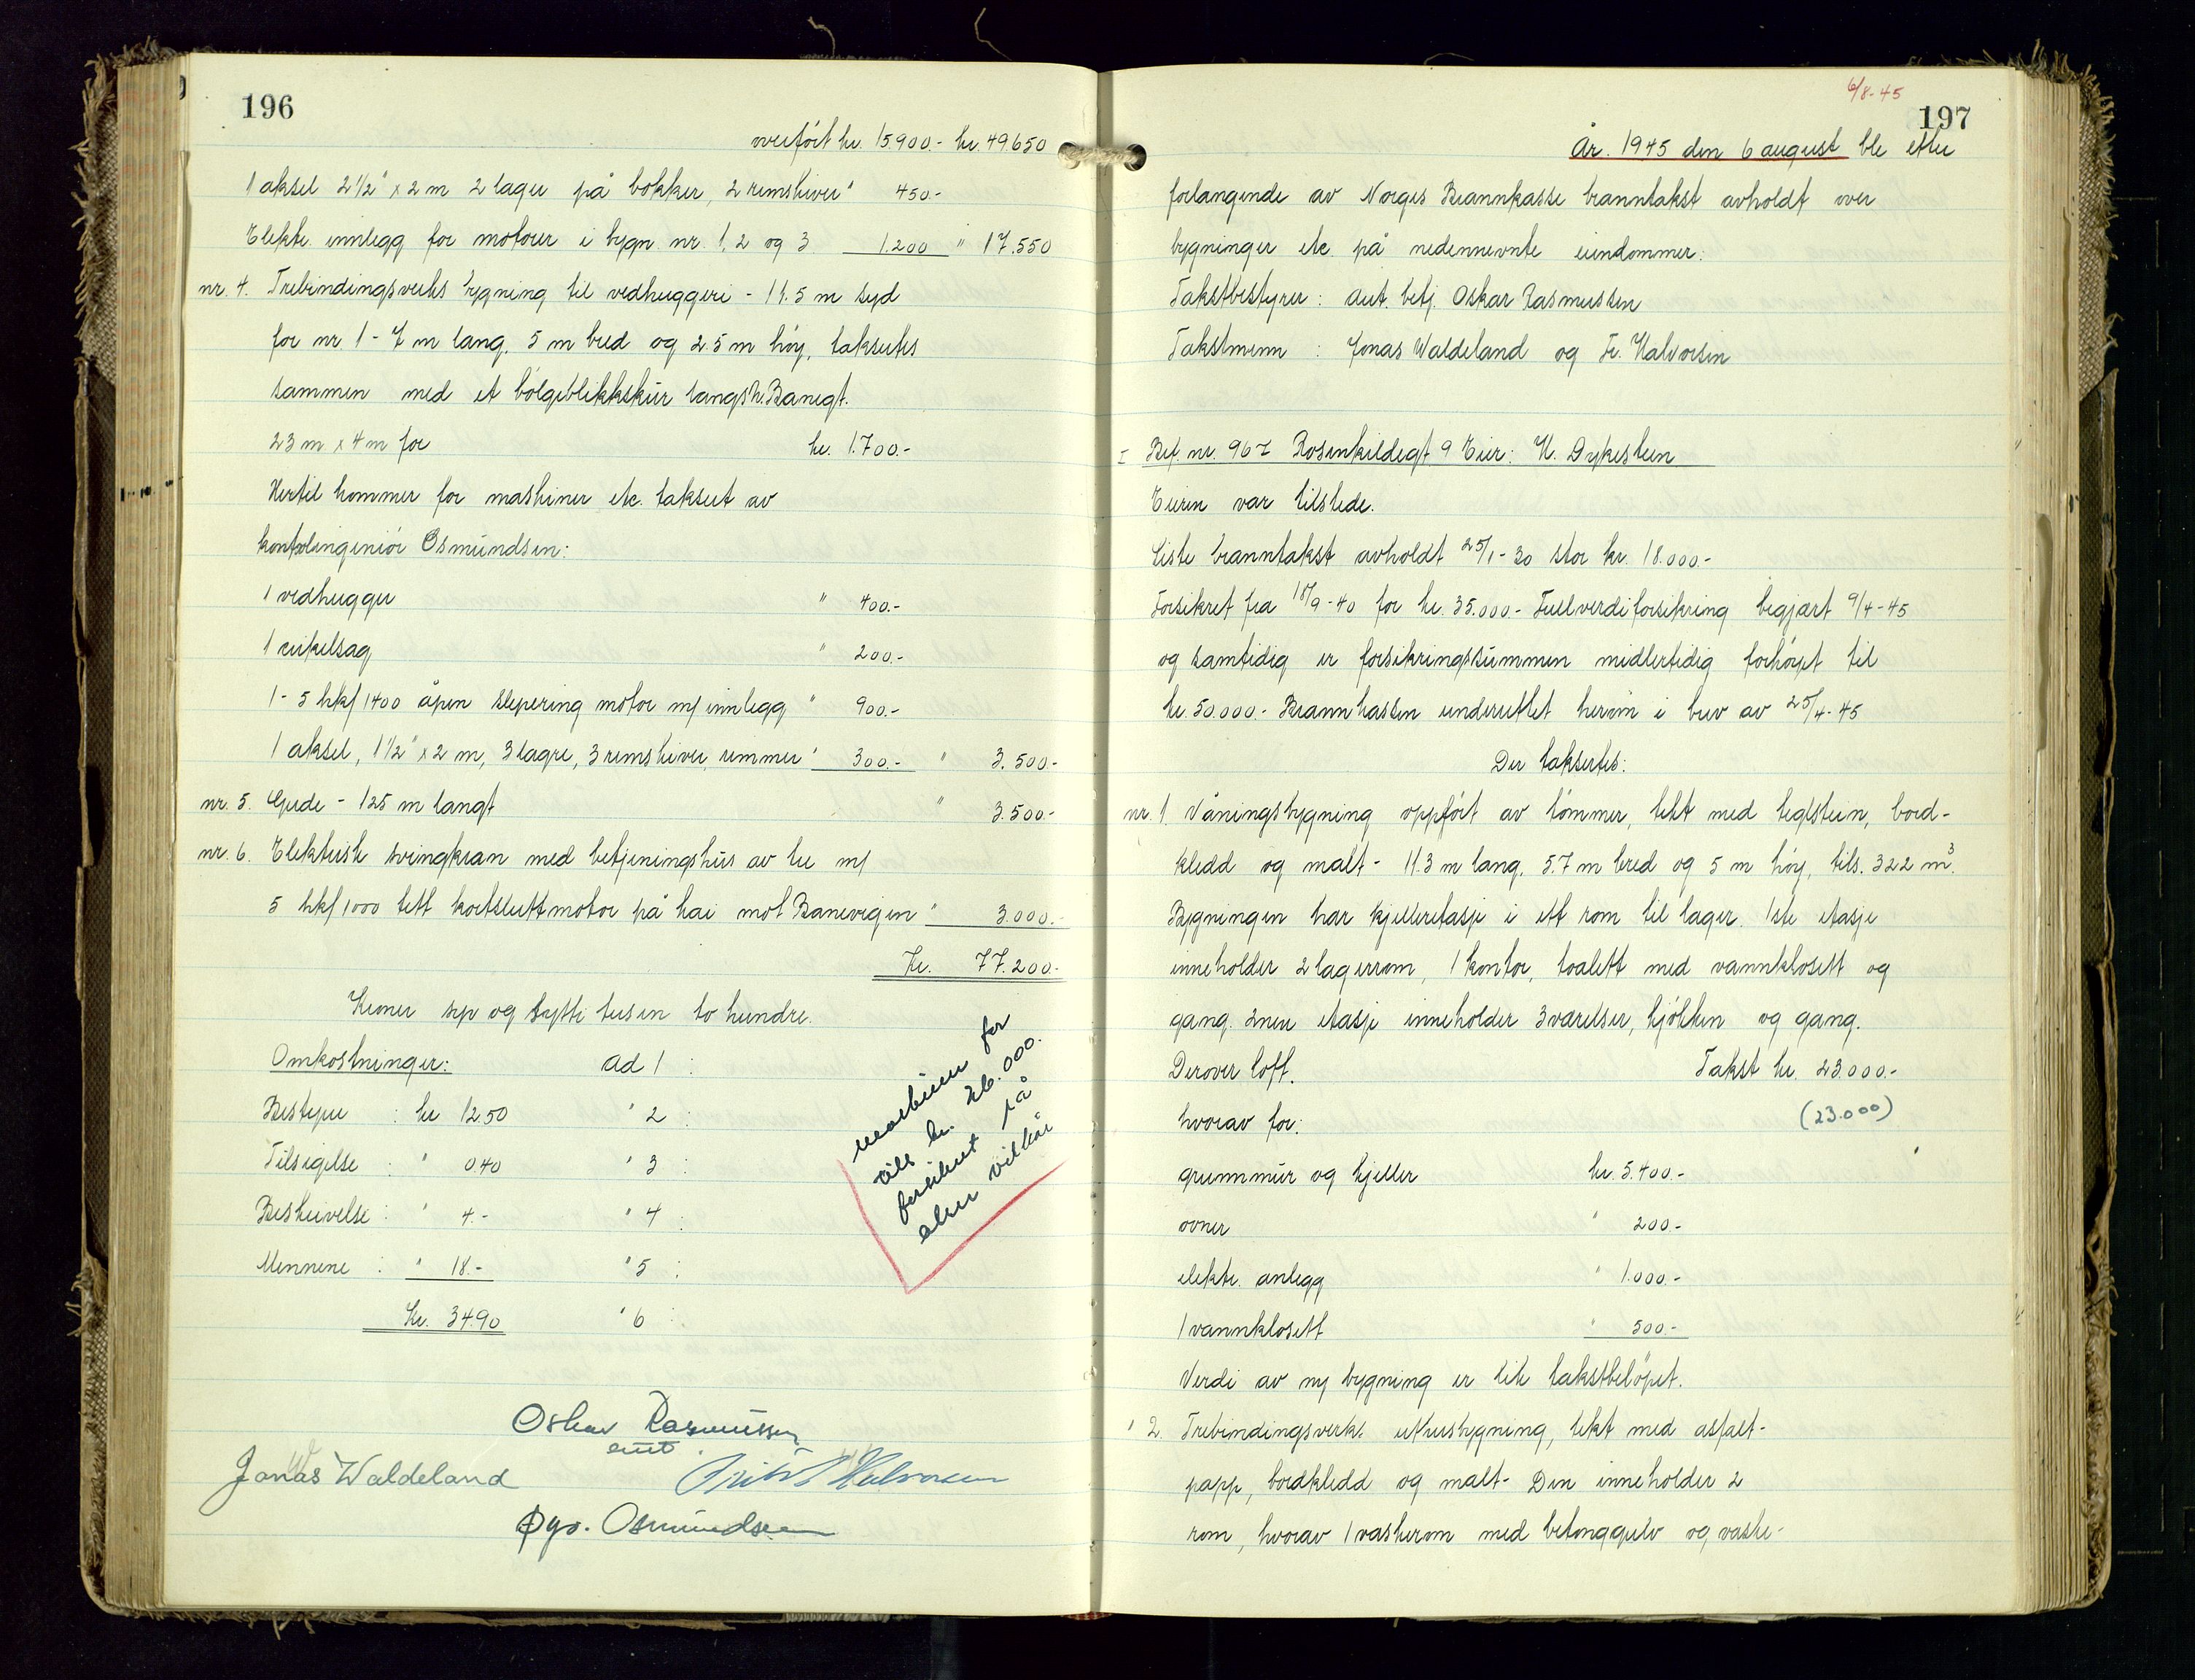 196
overført kr. 15.900.- kr. 49.650
1 aksel 2 1/2" x 2 m 2 lager på bokker, 2 remskiver " 450.-
Elektr. innlegg for motorer i bygn. nr. 1, 2 og 3 1.200 " 17.550
nr. 4. Trebindingsverks bygning til vedhuggeri - 11.5 m syd
for nr. 1 - 7 m lang, 5 m bred og 2.5 m høy, takseres
sammen med et bølgeblikkskur langs h. Banegt.
23 m x 4 m for kr. 1.700.-
Hertil kommer for maskiner etc. taksert av
kontrolingeniør Osmundsen:
1 vedhugger " 400.-
1 sirkelsag " 200.-
1 - 5 hkf/1400 åpen slepering motor m/ innlegg " 900.-
1 aksel, 1 1/2" x 2 m, 3 lagre, 3 remskiver, remmer " 300.- " 3.500.-
nr. 5. Gjerde - 125 m langt " 3.500.-
nr. 6. Elektrisk svingkran med betjeningshus av tre m/
5 hkf/1000 tett kortsluttmotor på kai mot Banevigen " 3.000.-
Kr. 77.200.-
Kroner syv og sytti tusen to hundre.
Omkostninger: ad 1 :
Bestyrer : kr 12.50 " 2 :
Tilsigelse : " 0.40 " 3 :
Beskrivelse : " 4.- " 4 :
Mennene : " 18.- " 5 :
Kr. 34.90 " 6 :
maskiner for
tils kr. 26.000.
forsikret på
alm vilkår
Oskar Rasmussen
aut.
Jonas Waldeland Halvorsen
Osmundsen
6/8-45
197
År. 1945 den 6 august ble etter
forlangende av Norges Brannkasse branntakst avholdt over
bygninger etc. på nedennevnte eiendommer:
Takstbestyrer : aut. betj. Oskar Rasmussen
Takstmenn : Jonas Waldeland og Fr. Halvorsen
I Bef. nr. 967 Rosenkildegt 9 Eier: H. Dykesteen
Eieren var tilstede.
Siste branntakst avholdt 25/1-30 stor kr. 18.000.-
Forsikret fra 18/9-40 for kr. 35.000.- Fullverdiforsikring begjært 9/4-45
og samtidig er forsikringssummen midlertidig forhøyet til
kr. 50.000.- Brannkassen underrettet herom i brev av 25/4-45
Der takseres:
nr. 1. Våningsbygning oppført av tømmer, tekt med teglsteen, bord-
kledd og malt - 11.3 m lang, 5.7 m bred og 5 m høy, tils. 322 m³.
Bygningen har kjelleretasje i ett rom til lager. 1ste etasje
inneholder 2 lagerrom, 1 kontor, toalett med vannklosett og
gang. 2nen etasje inneholder 3 værelser, kjøkken og gang.
Derover loft. Takst kr. 23.000.-
hvorav for: (23.000)
grunnmur og kjeller kr. 5.400.-
ovner " 200.-
elektr. anlegg " 1.000.-
1 vannklosett " 500.-
Verdi av ny bygning er lik takstbeløpet.
" 2. Trebindingsverks uthusbygning, tekt med asfalt-
papp, bordkledd og malt - Den inneholder 2
rom, hvorav 1 vaskerom med betonggulv og vaske-